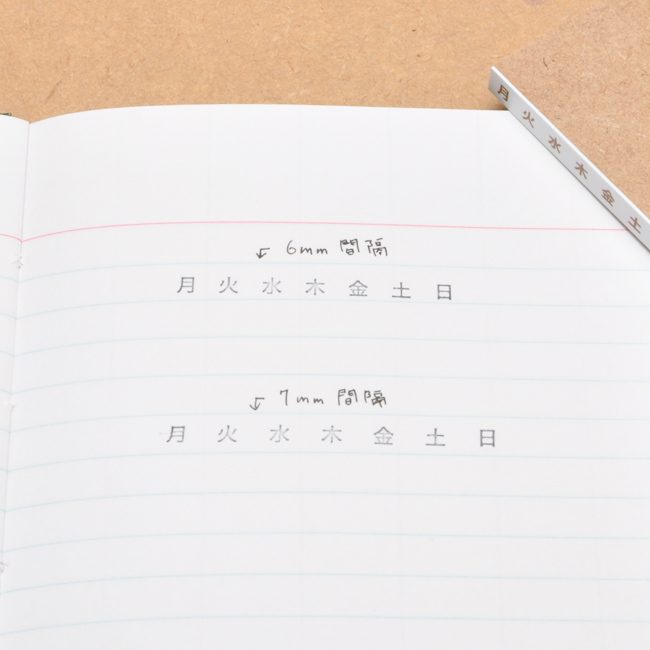 月火水木金土
6mm 間隔
月 火 水 木 金 土 日
7mm 間隔
月 火 水 木 金 土 日